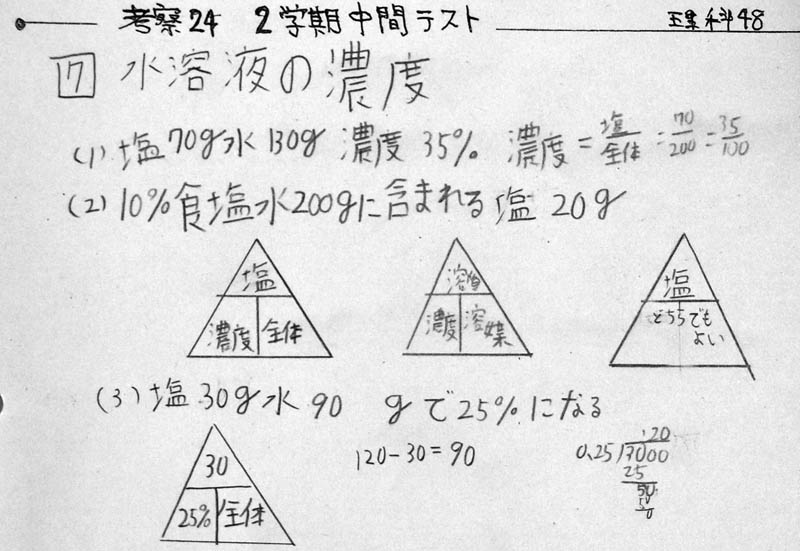 考察24 2学期中間テスト 理科48
7 水溶液の濃度
(1) 塩70g水130g 濃度35% 濃度=塩/全体=70/200=35/100
(2) 10%食塩水200gに含まれる塩20g
塩 溶質 塩
濃度 全体 濃度 溶媒 どちらでも
よい
(3) 塩30g水90 gで25%になる
30 120-30=90 120
25% 全体 0.25
25
50
50
0